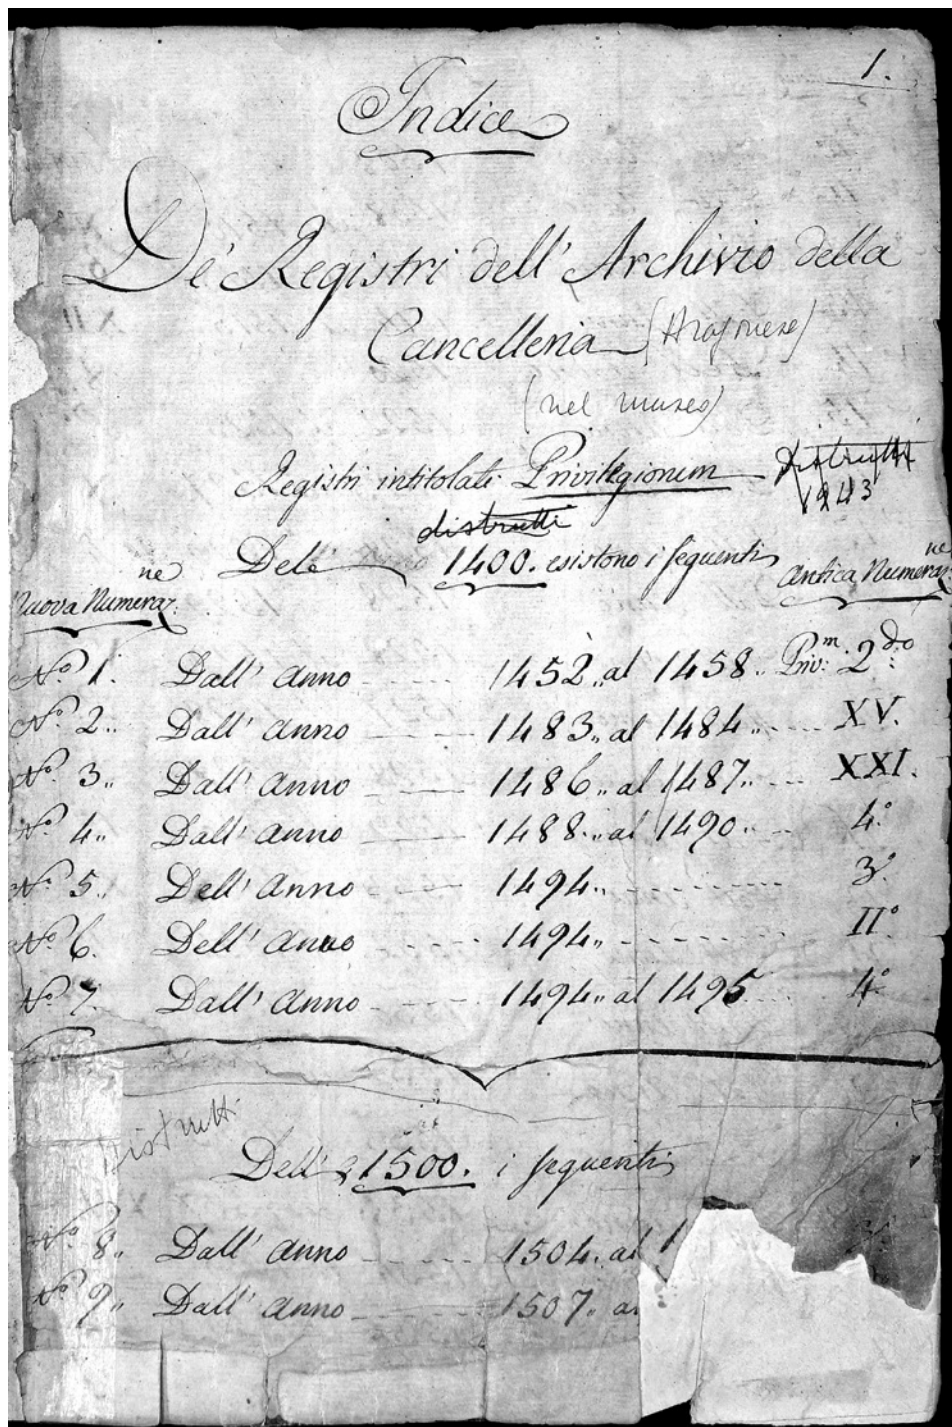 1.
Indice
De' Registri dell' Archivio della
Cancelleria (Aragonese)
(nel museo)
Registri intitolati Privilegiorum distrutti
1943
distrutti
Dell' 1400. esistono i seguenti
Nuova Numeraz.ne Antica Numeraz.ne
N.o 1. Dall' anno 1452 „ al 1458 „ Priv.m 2.do
N.o 2 „ Dall' anno 1483 „ al 1484 „ XV.
N.o 3 „ Dall' anno 1486 „ al 1487 „ XXI.
N.o 4 „ Dall' anno 1488 „ al 1490 „ 4.o
N.o 5 „ Dell' anno 1494 „ 3.o
N.o 6. Dell' anno 1494 „ II.o
N.o 7. Dall' anno 1494 „ al 1495 4.o
Distrutti
Dell' 1500. i seguenti
N.o 8 „ Dall' anno 1504. al 1
N.o 9 „ Dall' anno 1507 „ al